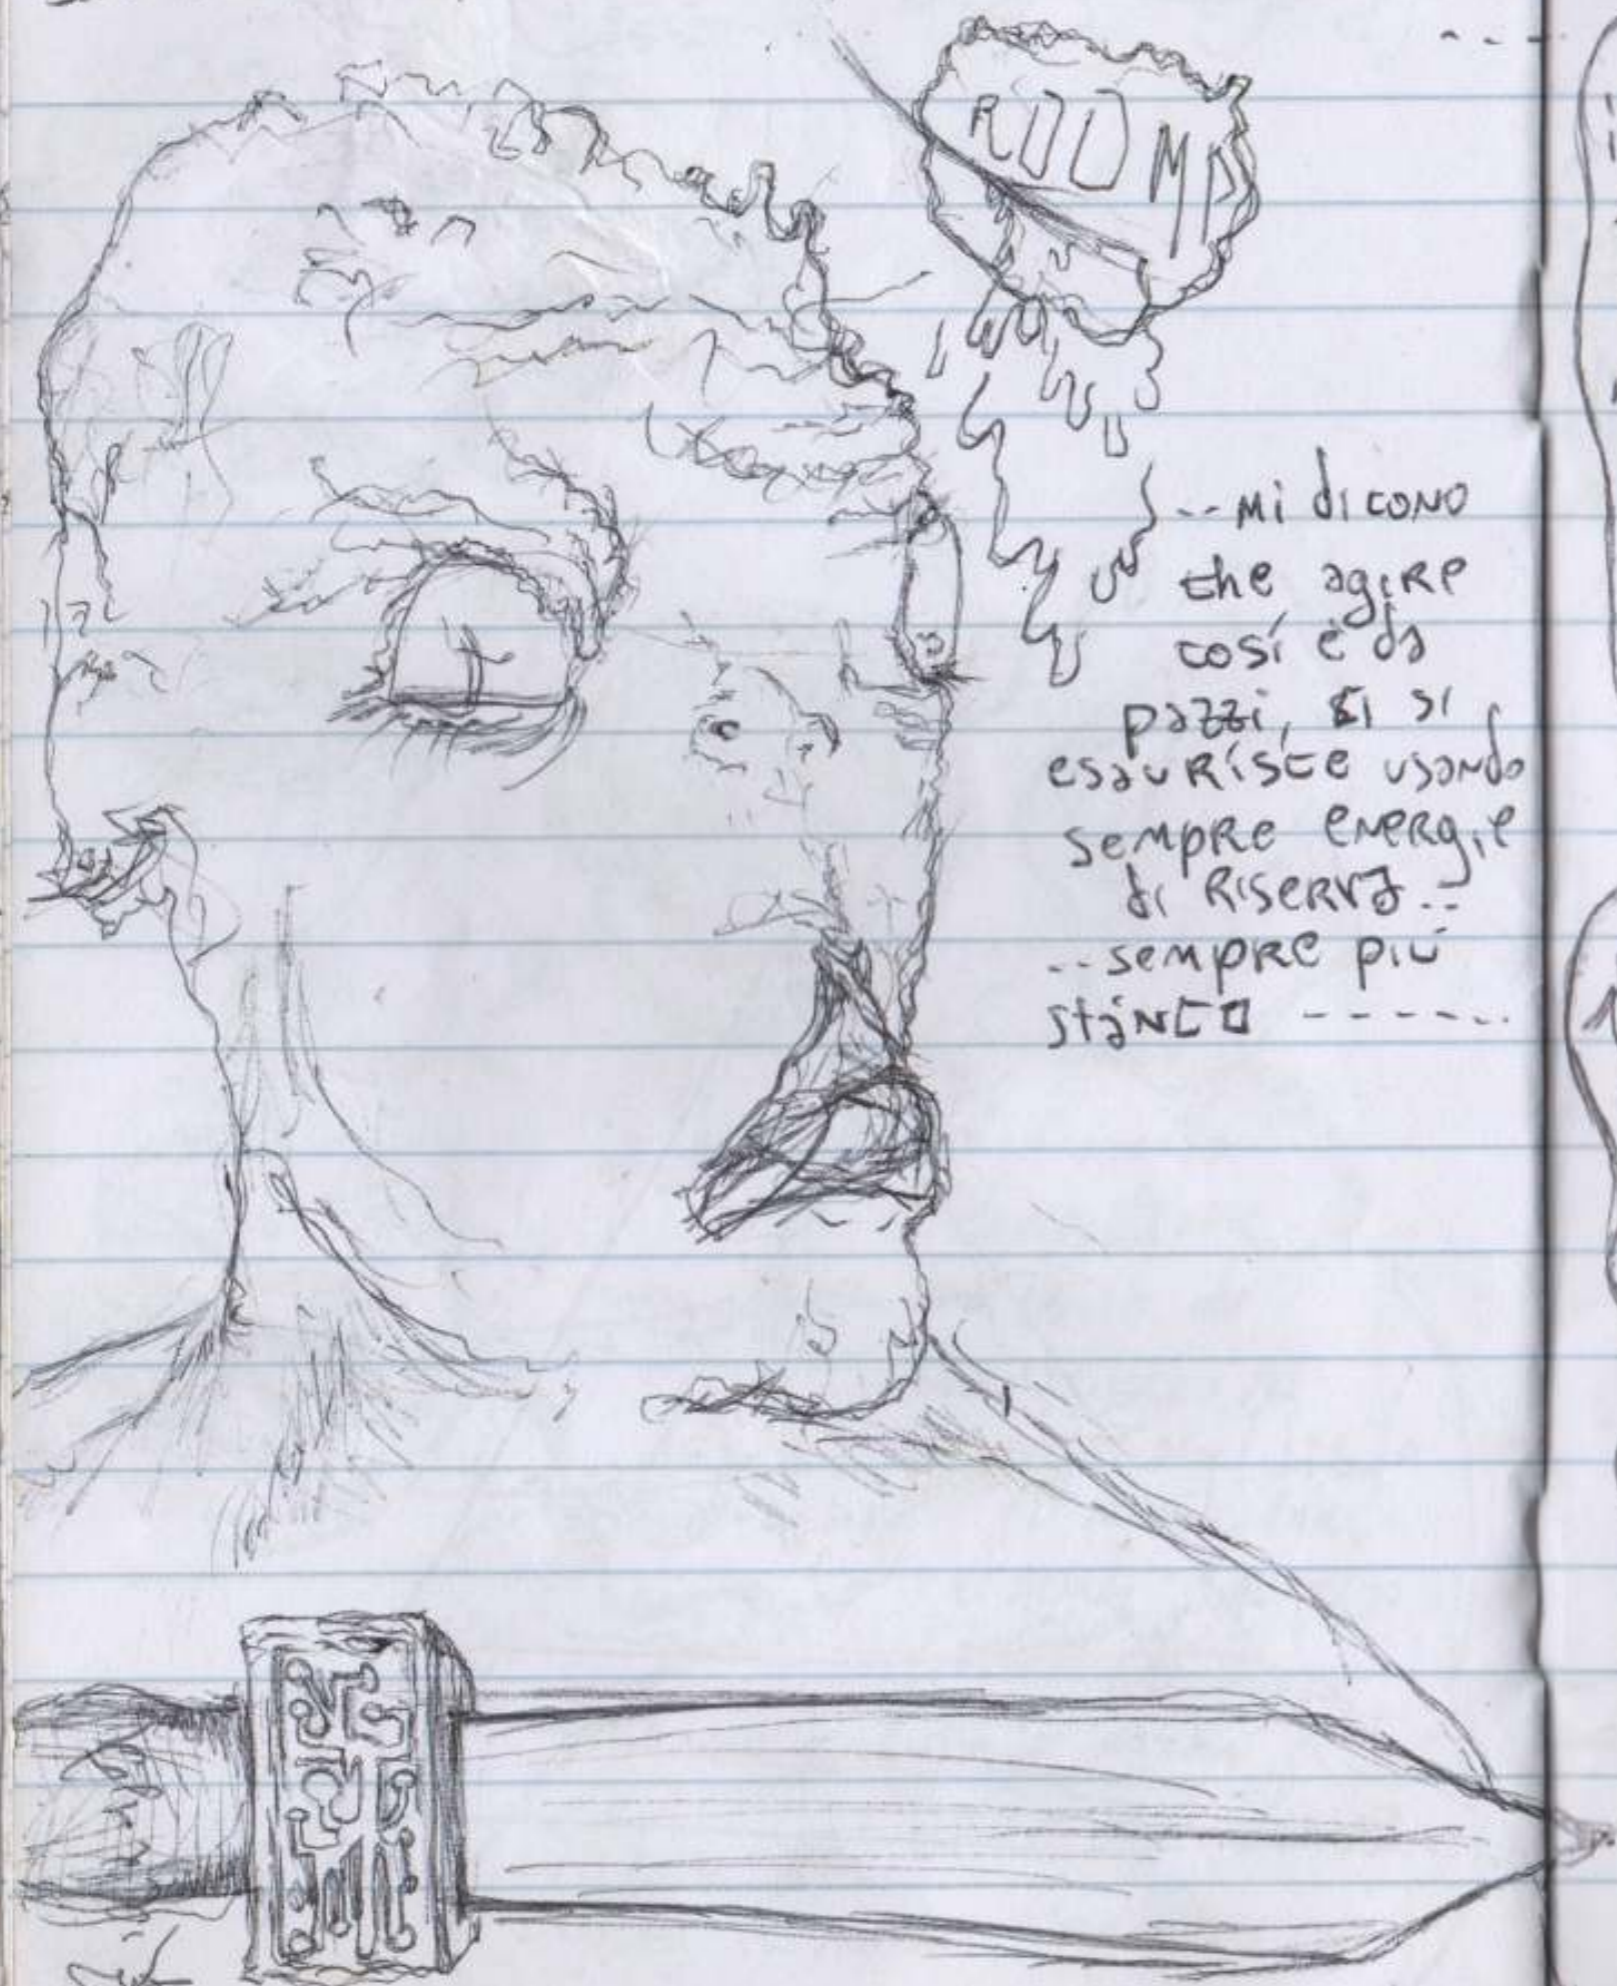 ROOMA
.. Mi dicono
che agire
così è da
pazzi, si si
esaurisce usando
sempre energie
di riserva ..
.. sempre più
stanco ------..